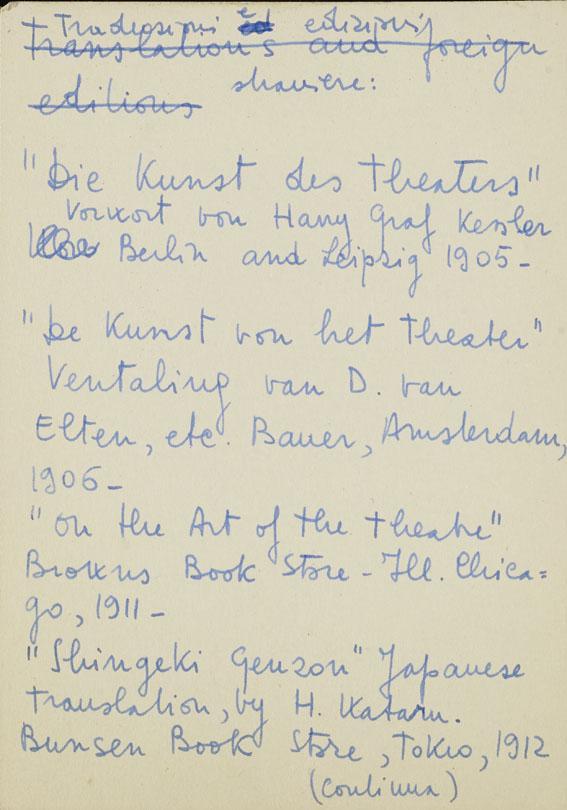 Traduzioni ed edizioni
translations and foreign
straniere:
editions
"Die Kunst des Theaters"
Vorwort von Harry Graf Kessler
Berlin and Leipzig 1905-
"De Kunst von het Theater"
Ventaling van D. van
Elten, etc. Bauer, Amsterdam,
1906-
"On the Art of the theatre"
Browns Book Store - Ill. Chica=
go, 1911-
"Shingeki Genzon" Japanese
translation, by H. Kataru.
Bunsen Book Store, Tokio, 1912
(continua)